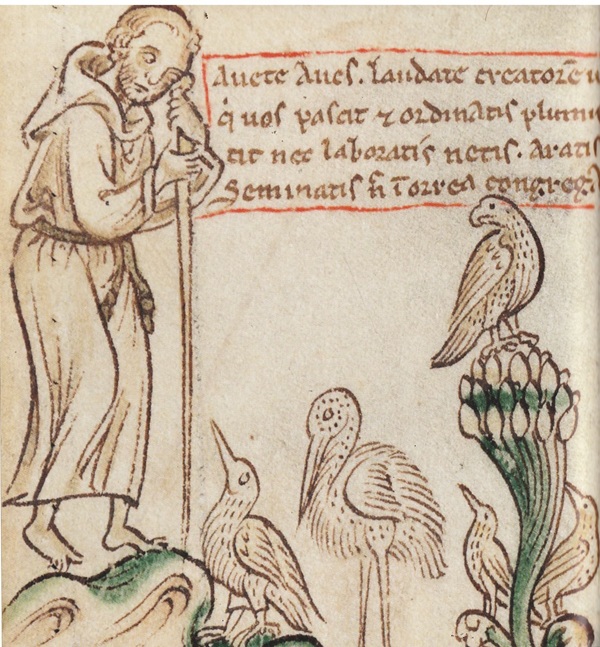 Avete Aves. laudate creatorē v
q̇ uos pascit ⁊ ordinatis plumis
tit nec laboratis netis. Aratis
Seminatis ñ ī orrea congrega